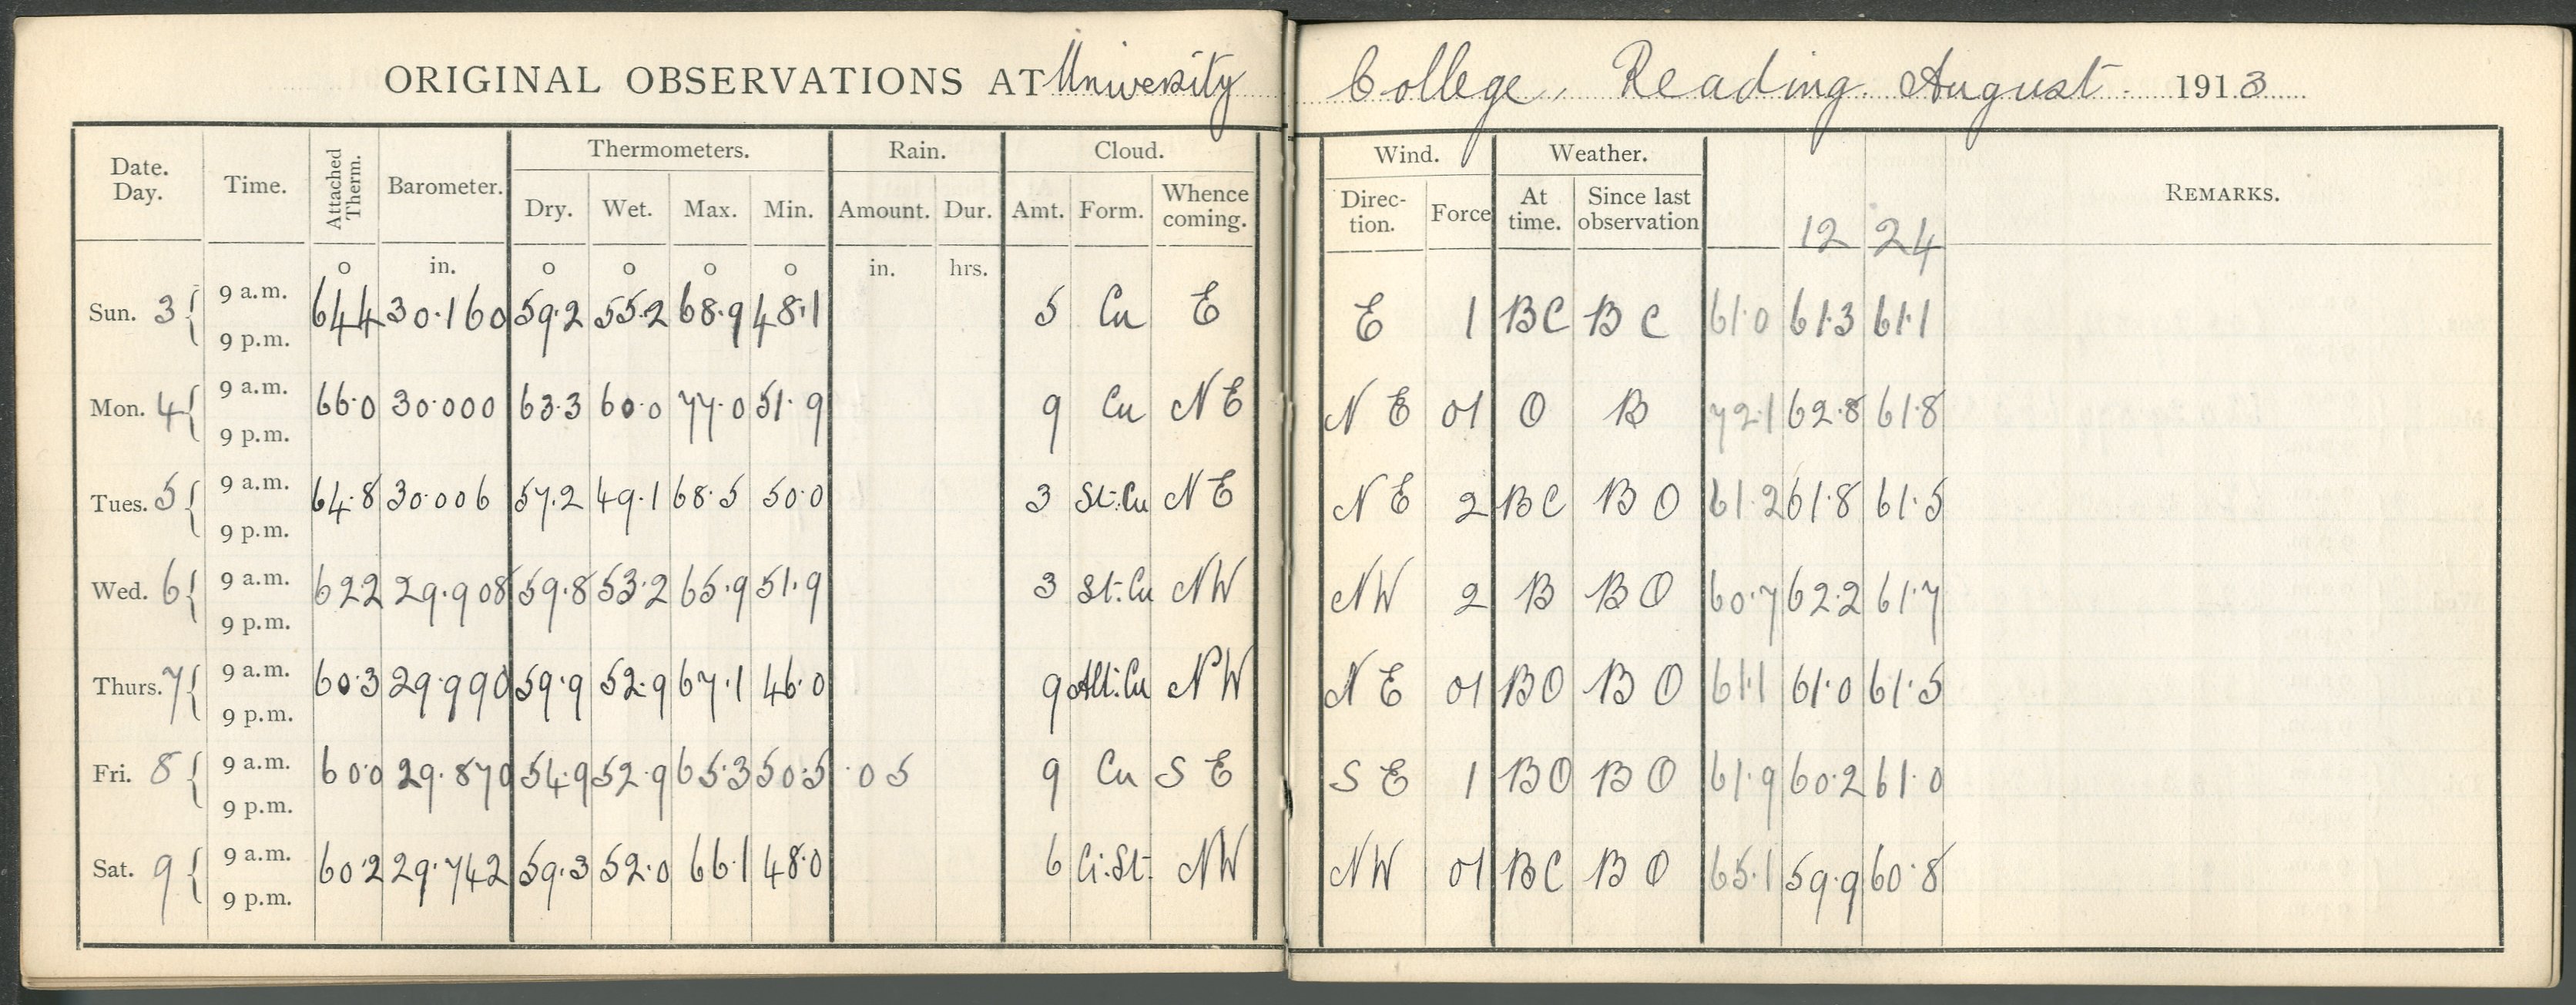 ORIGINAL OBSERVATIONS AT University College, Reading. August 1913
Date. Day. Time. Attached Therm. Barometer. Thermometers. Rain. Cloud. Wind. Weather. REMARKS.
Dry. Wet. Max. Min. Amount. Dur. Amt. Form. Whence coming. Direc- tion. Force At time. Since last observation 12 24
o in. o o o o in. hrs.
Sun. 3 9 a.m. 64.4 30.160 59.2 55.2 68.9 48.1 5 Cu E E 1 BC BC 61.0 61.3 61.1
9 p.m.
Mon. 4 9 a.m. 66.0 30.000 63.3 60.0 77.0 51.9 9 Cu NE NE 01 O B 72.1 62.8 61.8
9 p.m.
Tues. 5 9 a.m. 64.8 30.006 57.2 49.1 68.5 50.0 3 St.Cu NE NE 2 BC BO 61.2 61.8 61.5
9 p.m.
Wed. 6 9 a.m. 62.2 29.908 59.8 53.2 65.9 51.9 3 St.Cu NW NW 2 B BO 60.7 62.2 61.7
9 p.m.
Thurs. 7 9 a.m. 60.3 29.990 59.9 52.9 67.1 46.0 9 Alt.Cu NW NE 01 BO BO 61.1 61.0 61.5
9 p.m.
Fri. 8 9 a.m. 60.0 29.870 54.9 52.9 65.3 50.5 .05 9 Cu SE SE 1 BO BO 61.9 60.2 61.0
9 p.m.
Sat. 9 9 a.m. 60.2 29.742 59.3 52.0 66.1 48.0 6 Ci.St. NW NW 01 BC BO 65.1 59.9 60.8
9 p.m.